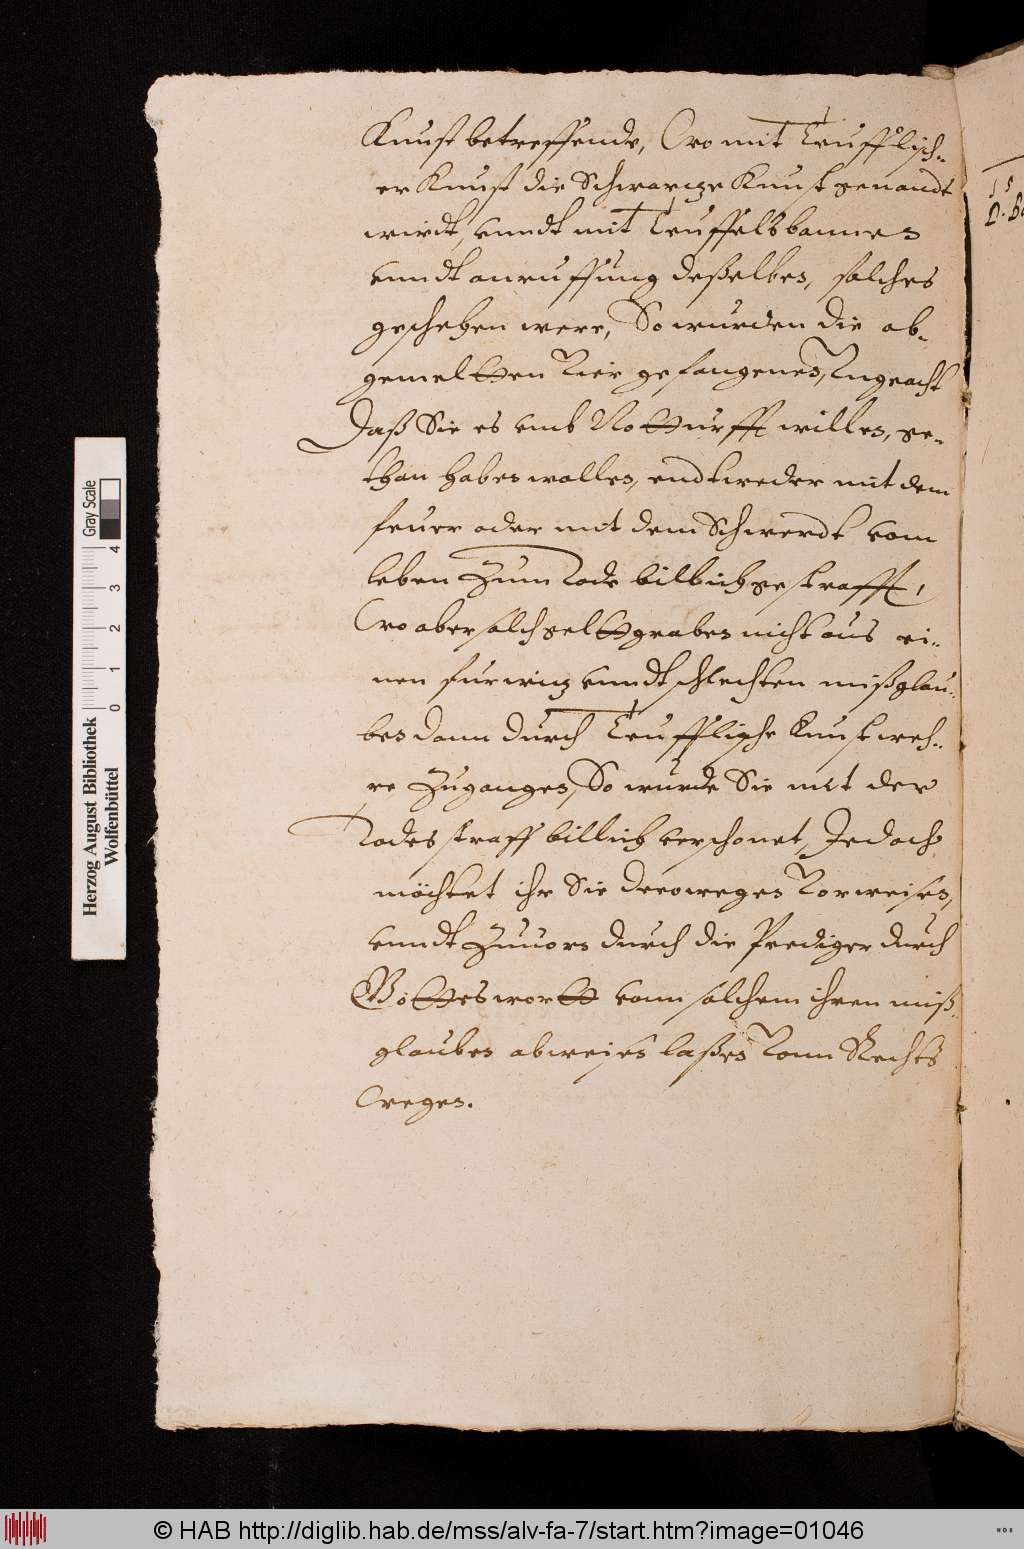 Kunst betreffende, Wo mit Teufflisch-
er Kunst die Schwarcze Kunst genandt
wirdt, vnndt mit Teuffelsbannen
vnndt anruffung deßelben, solches
geschehen were, So wurden die ob-
gemeltten Vier gefangenen, Vngeacht
Daß Sie es vmb Notturfft willen, ge-
than haben wollen, endtweder mit dem
feuer oder mit dem Schwerdt vom
leben Zum Tode billich gestrafft,
Wo aber solch geltt graben nicht aus ei-
nen furwicz vnndt schlechten mißglau-
ben dann durch Teufflische Kunst weh-
re Zugangen, So wurde Sie mit der
Todes straff billich verschonet, Jedoch
möchtet ihr Sie derowegen Vorweisen,
vnndt Zuuorn durch die Prediger durch
Gottes wortt vonn solchem ihren miß-
glauben abweisen laßen Vonn Rechts
Wegen.
15
D. Ba
Herzog August Bibliothek
Wolfenbüttel
Gray Scale
0 1 2 3 4
© HAB http://diglib.hab.de/mss/alv-fa-7/start.htm?image=01046